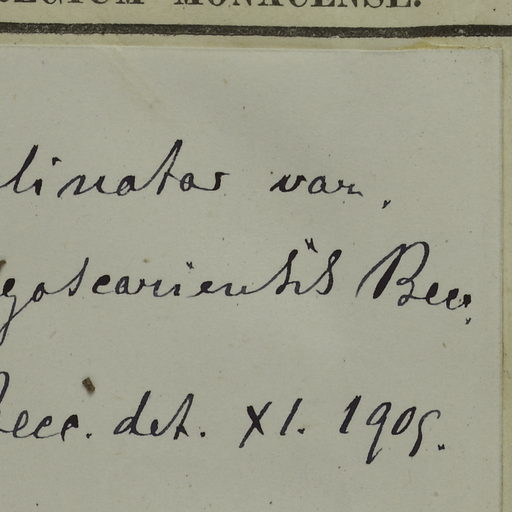 REGIUM MONACENSE.
linatar var.
gascariensis Becc.
Becc. det. XI. 1905.